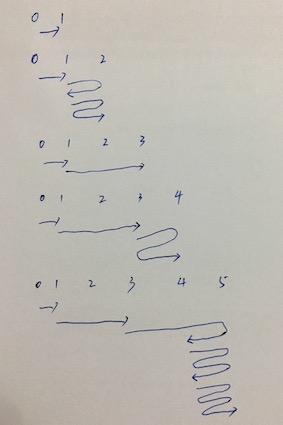 0 1
0 1 2
0 1 2 3
0 1 2 3 4
0 1 2 3 4 5